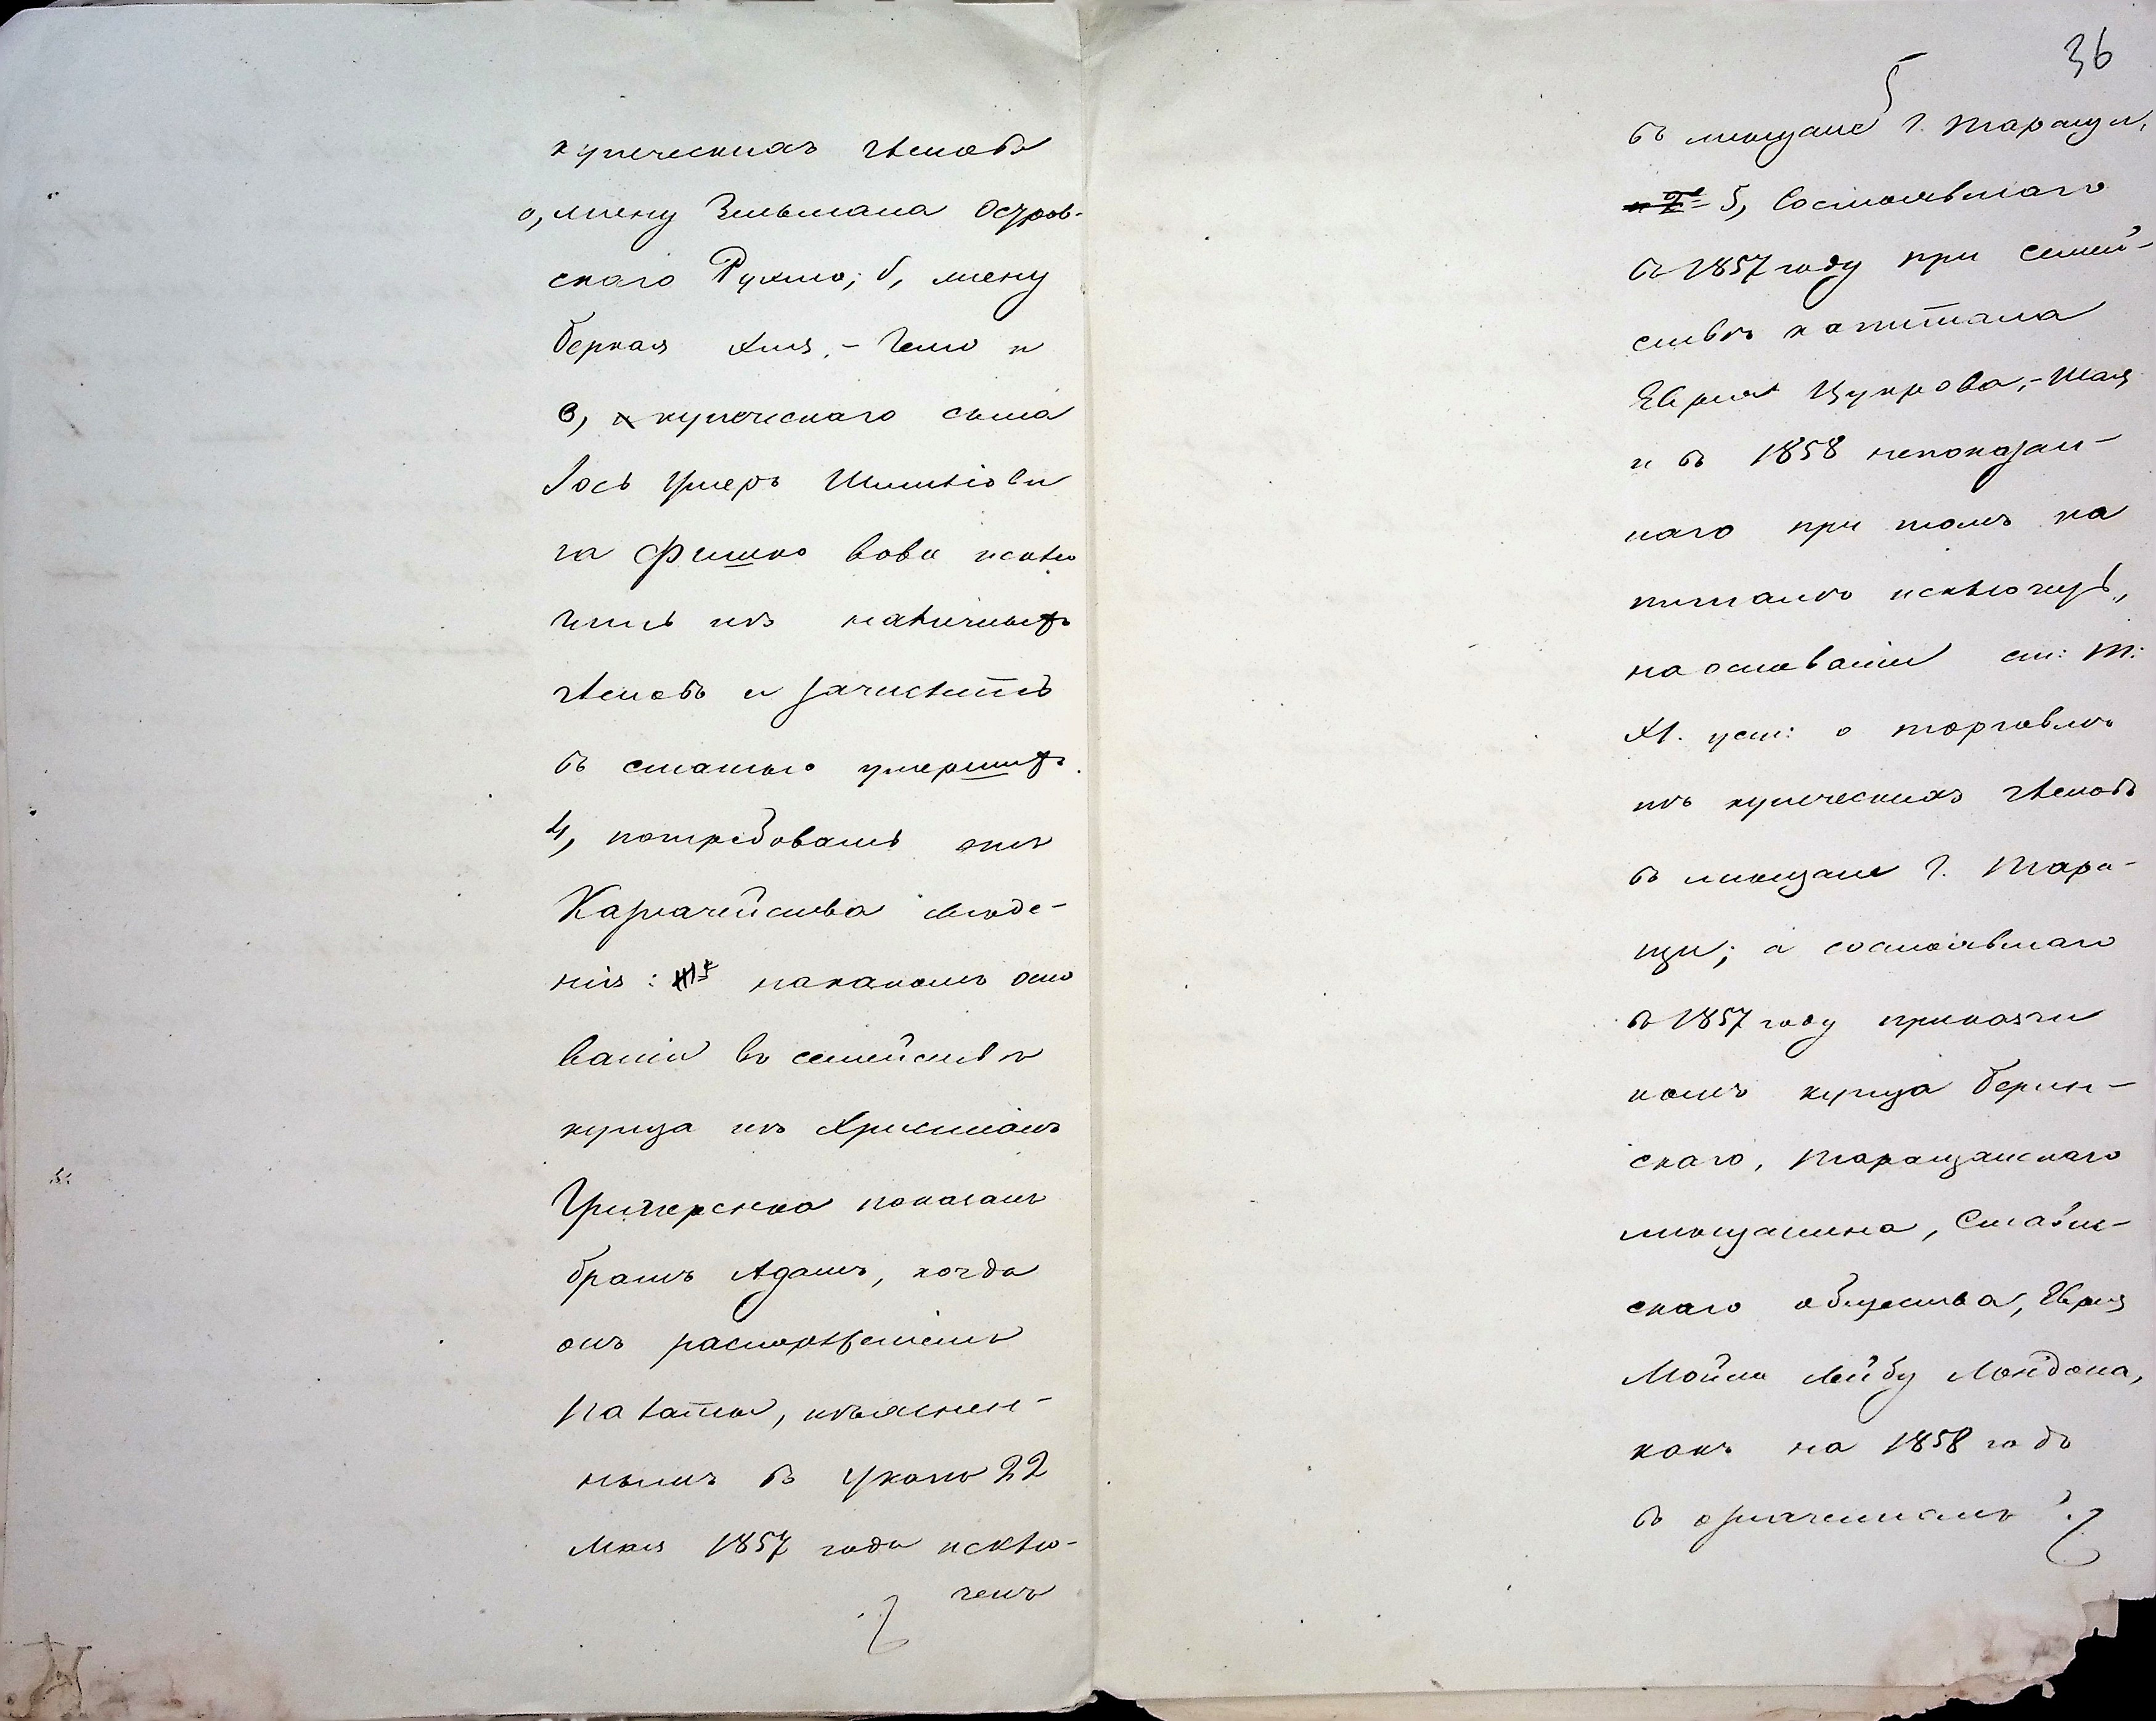 купеческихъ членовъ
а, жену Зельмана Остров-
скаго Рухлю; б, жену
Беркая Хая, - Чемо и
в, купеческаго сына
Іось Гмеръ Шмилiови
ча Фишко вова исклю
чить изъ наличныхъ
членовъ и зачислить
въ статью умершихъ.
4, потребовать отъ
Казначейства свѣде-
нія: накакомъ осно
ваніи въ семействѣ
купца изъ Христіанъ
показанъ
братъ Адамъ, когда
онъ распоряженіемъ
Палаты, изъяснен-
нымъ въ указѣ 22
Мая 1857 года исклю-
ченъ
36
5
въ мещане г. Таращи,
5, Состоявшаго
въ 1857 году при семей-
ствѣ капитала
Еврея Цукрова, - Шая
и въ 1858 непоказан-
наго при томъ ка
питалѣ исключить,
на основаніи ст: Т:
XI. уст: о торговлѣ
изъ купеческихъ членовъ
въ мещане г. Тара-
щи; а состоявшаго
въ 1857 году приказчи
комъ купца Берин-
скаго, Таращанскаго
мещанина, Стави-
скаго общества, Еврея
Мойше Лейбу Лондона,
какъ на 1858 годъ
въ означенномъ